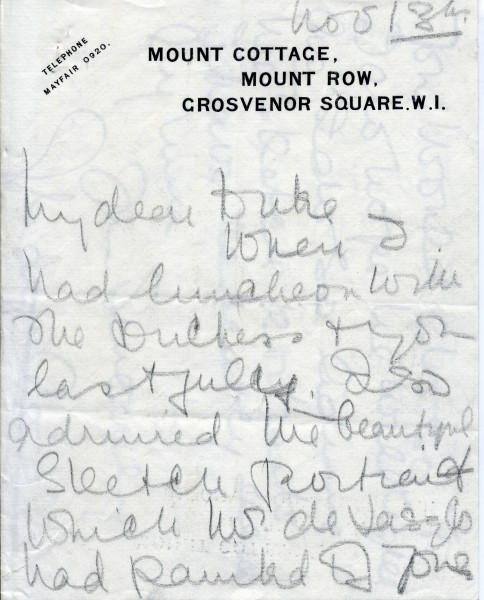 Nov 13th.
TELEPHONE
MAYFAIR 0920.
MOUNT COTTAGE,
MOUNT ROW,
GROSVENOR SQUARE.W.I.
My dear Duke
When I
had luncheon with
the Duchess & you
last July, I so
admired the beautiful
sketch portrait
which Mr de Laszlo
had painted of